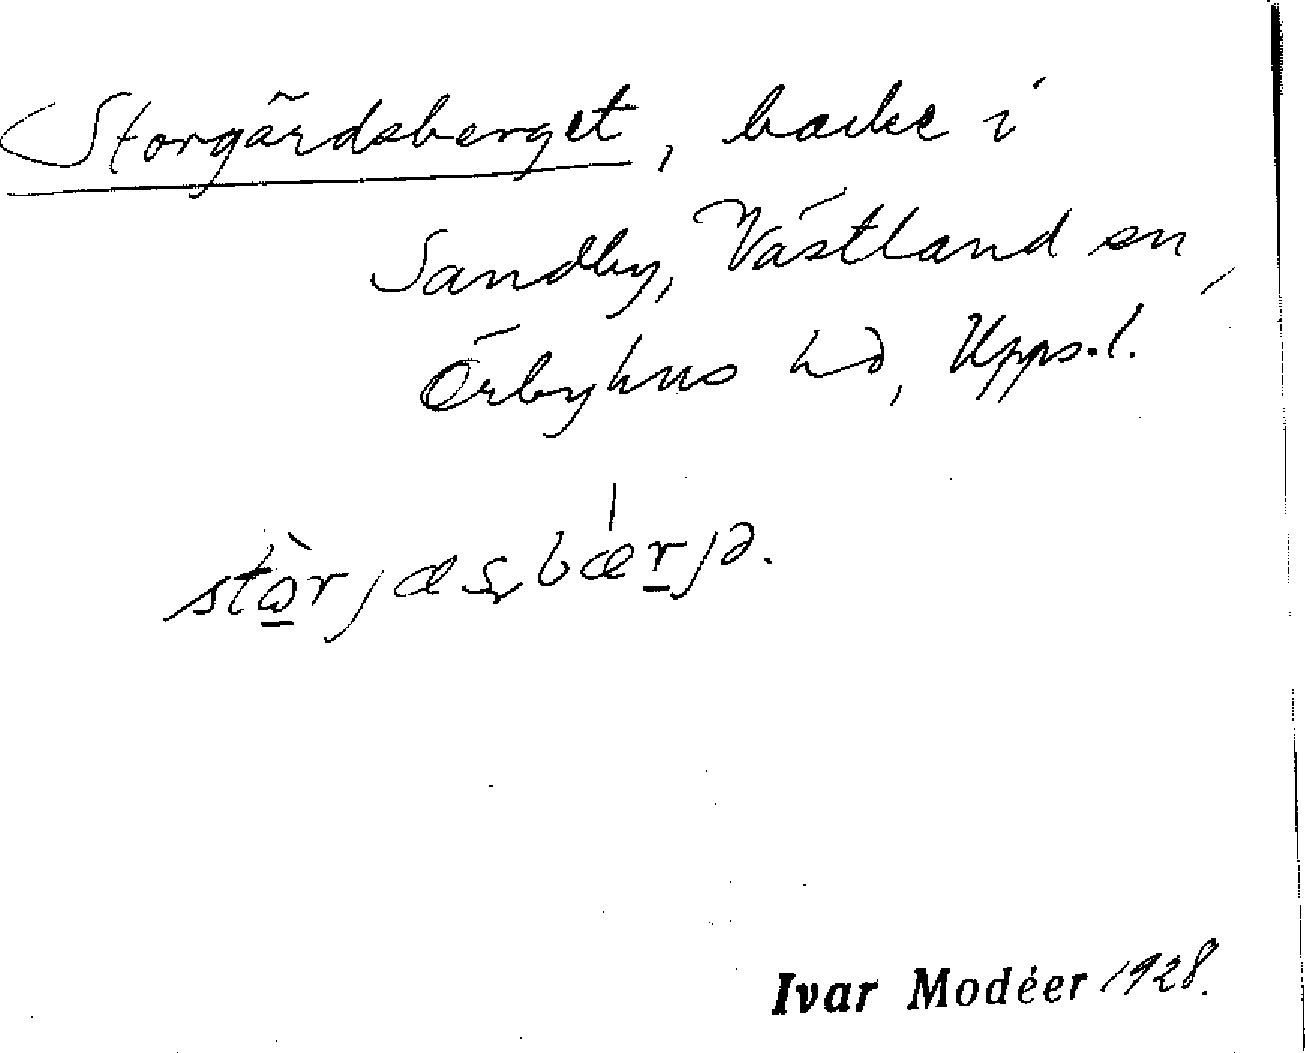 Storgärdsberget, backe i
Sandby, Västland sn,
Örbyhus hd, Upps.l.
stὼrjæʂbǽrjə.
Ivar Modéer 1928.